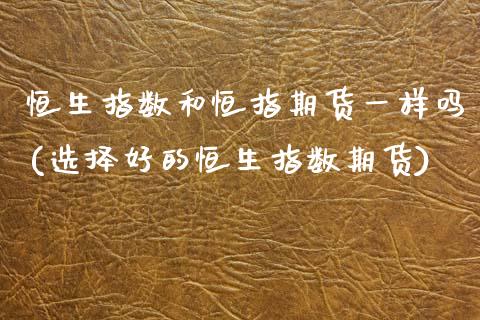 恒生指数和恒指期货一样吗
(选择好的恒生指数期货)